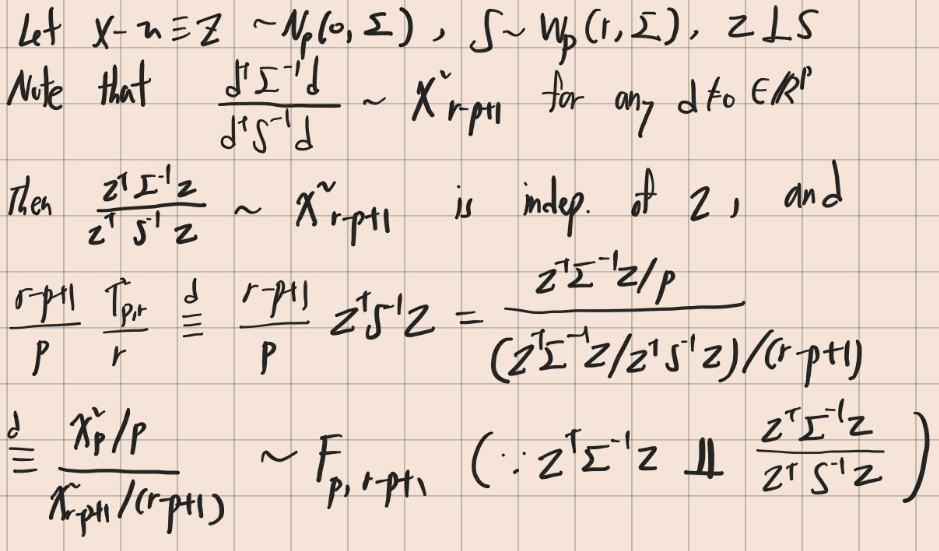 Let X-n ≡ Z ~ N_p(0, Σ), S ~ W_p(r, Σ), Z ⊥ S
Note that \frac{d^T Σ^{-1} d}{d^T S^{-1} d} ~ χ²_{r-p+1} for any d ≠ 0 ∈ ℝ^p
Then \frac{z^T Σ^{-1} z}{z^T S^{-1} z} ~ χ²_{r-p+1} is indep. of Z, and
\frac{r-p+1}{p} \frac{T²_{p,r}}{r} \overset{d}{≡} \frac{r-p+1}{p} Z^T S^{-1} Z = \frac{Z^T Σ^{-1} Z / p}{(Z^T Σ^{-1} Z / Z^T S^{-1} Z) / (r-p+1)}
\overset{d}{≡} \frac{χ²_p / p}{χ²_{r-p+1} / (r-p+1)} ~ F_{p, r-p+1} (∵ Z^T Σ^{-1} Z ⫫ \frac{Z^T Σ^{-1} Z}{Z^T S^{-1} Z})